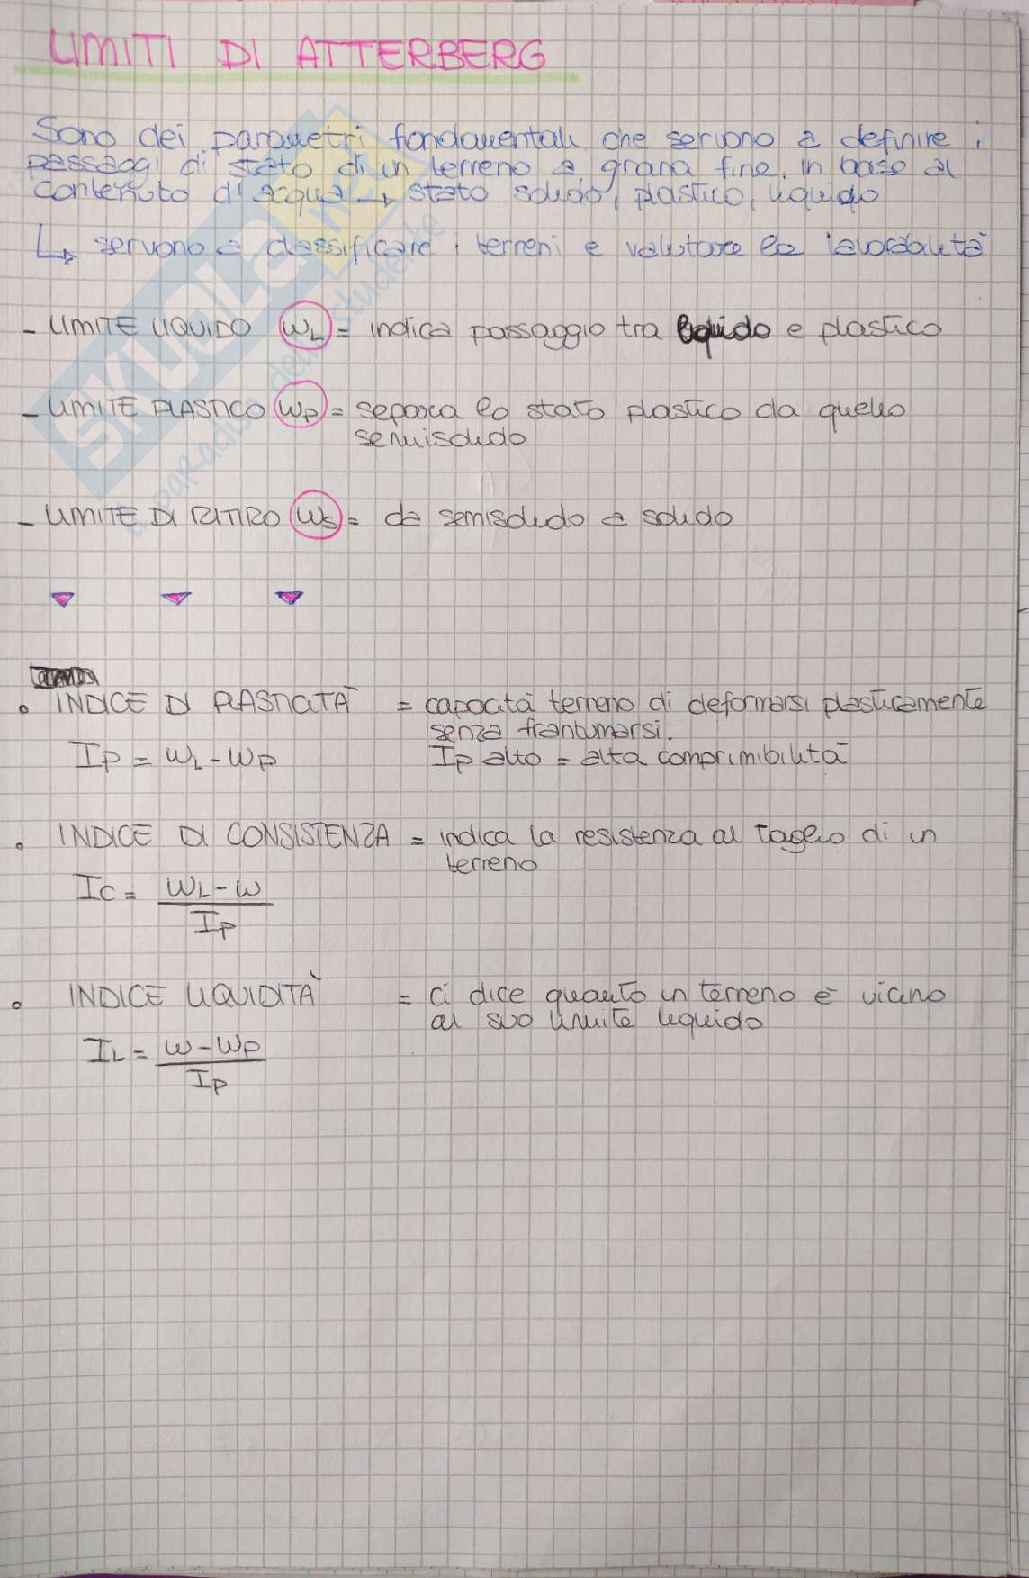 LIMITI DI ATTERBERG
Sono dei parametri fondamentali che servono a definire i
passaggi di stato di un terreno a grana fine, in base al
contenuto di acqua → stato solido, plastico, liquido
↳ servono a classificare i terreni e valutare la lavorabilità
- LIMITE LIQUIDO (WL) = indica passaggio tra liquido e plastico
- LIMITE PLASTICO (WP) = separa lo stato plastico da quello
semisolido
- LIMITE DI RITIRO (WS) = da semisolido a solido
• INDICE DI PLASTICITÀ = capacità terreno di deformarsi plasticamente
senza frantumarsi.
IP = WL - WP Ip alto = alta comprimibilità
• INDICE DI CONSISTENZA = indica la resistenza al taglio di un
terreno
IC = WL - W
IP
• INDICE LIQUIDITÀ = ci dice quanto un terreno è vicino
al suo limite liquido
IL = W - WP
IP
SKUOLA.net
il paradiso dello studente